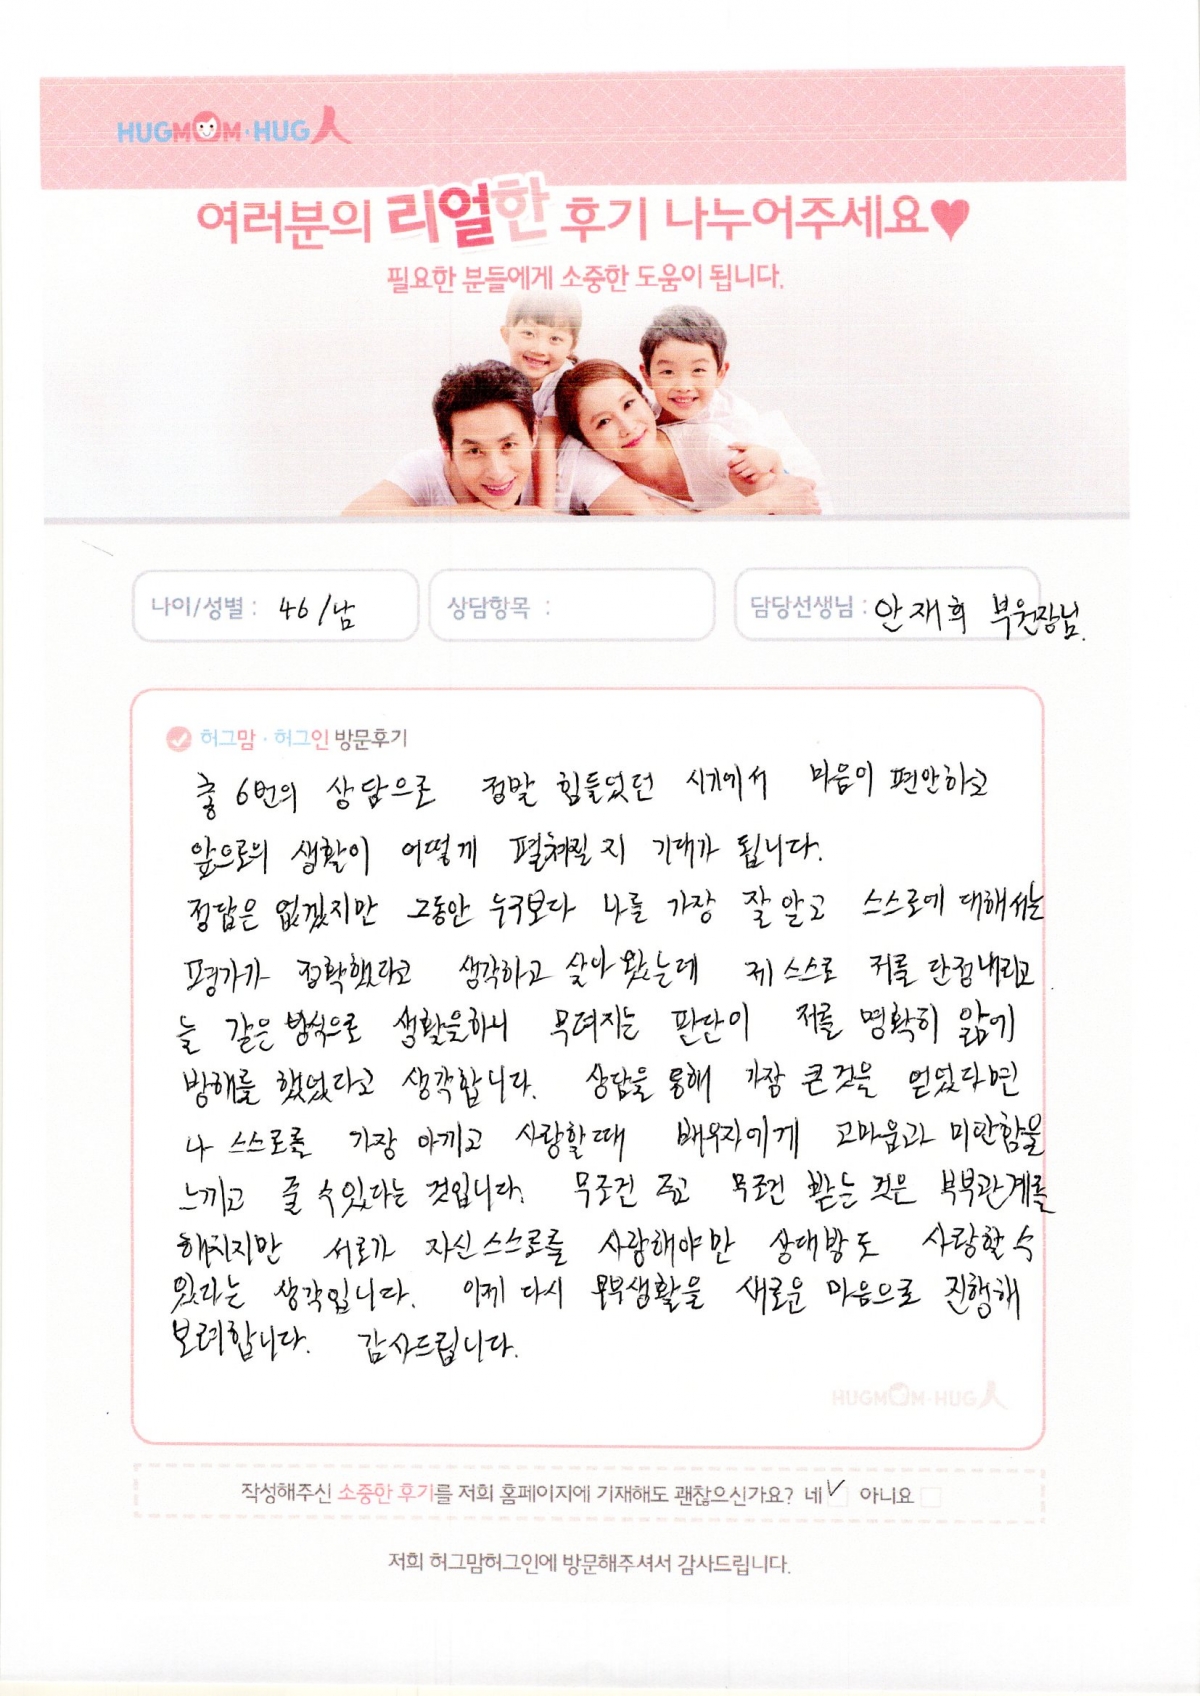 HUGMOM·HUG人
여러분의 리얼한 후기 나누어주세요♥
필요한 분들에게 소중한 도움이 됩니다.
나이/성별 : 46/남
상담항목 :
담당선생님 : 안재희 부원장님.
허그맘·허그인 방문후기
총 6번의 상담으로 정말 힘들었던 시기에서 마음이 편안하고
앞으로의 생활이 어떻게 펼쳐질 지 기대가 됩니다.
정답은 없겠지만 그동안 누구보다 나를 가장 잘 알고 스스로에 대해서는
평가가 정확했다고 생각하고 살아 왔는데 제 스스로 저를 단정내리고
늘 같은 방식으로 생활을하니 무뎌지는 판단이 저를 명확히 앎에
방해를 했었다고 생각합니다. 상담을 통해 가장 큰것을 얻었다면
나 스스로를 가장 아끼고 사랑할때 배우자에게 고마움과 미안함을
느끼고 줄 수있다는 것입니다. 무조건 주고 무조건 받는 것은 부부관계를
해치지만 서로가 자신스스로를 사랑해야만 상대방도 사랑할 수
있다라는 생각입니다. 이제 다시 부부생활을 새로운 마음으로 진행해
보려합니다. 감사드립니다.
HUGMOM·HUG人
작성해주신 소중한 후기를 저희 홈페이지에 기재해도 괜찮으신가요? 네 ✓ 아니요
저희 허그맘허그인에 방문해주셔서 감사드립니다.